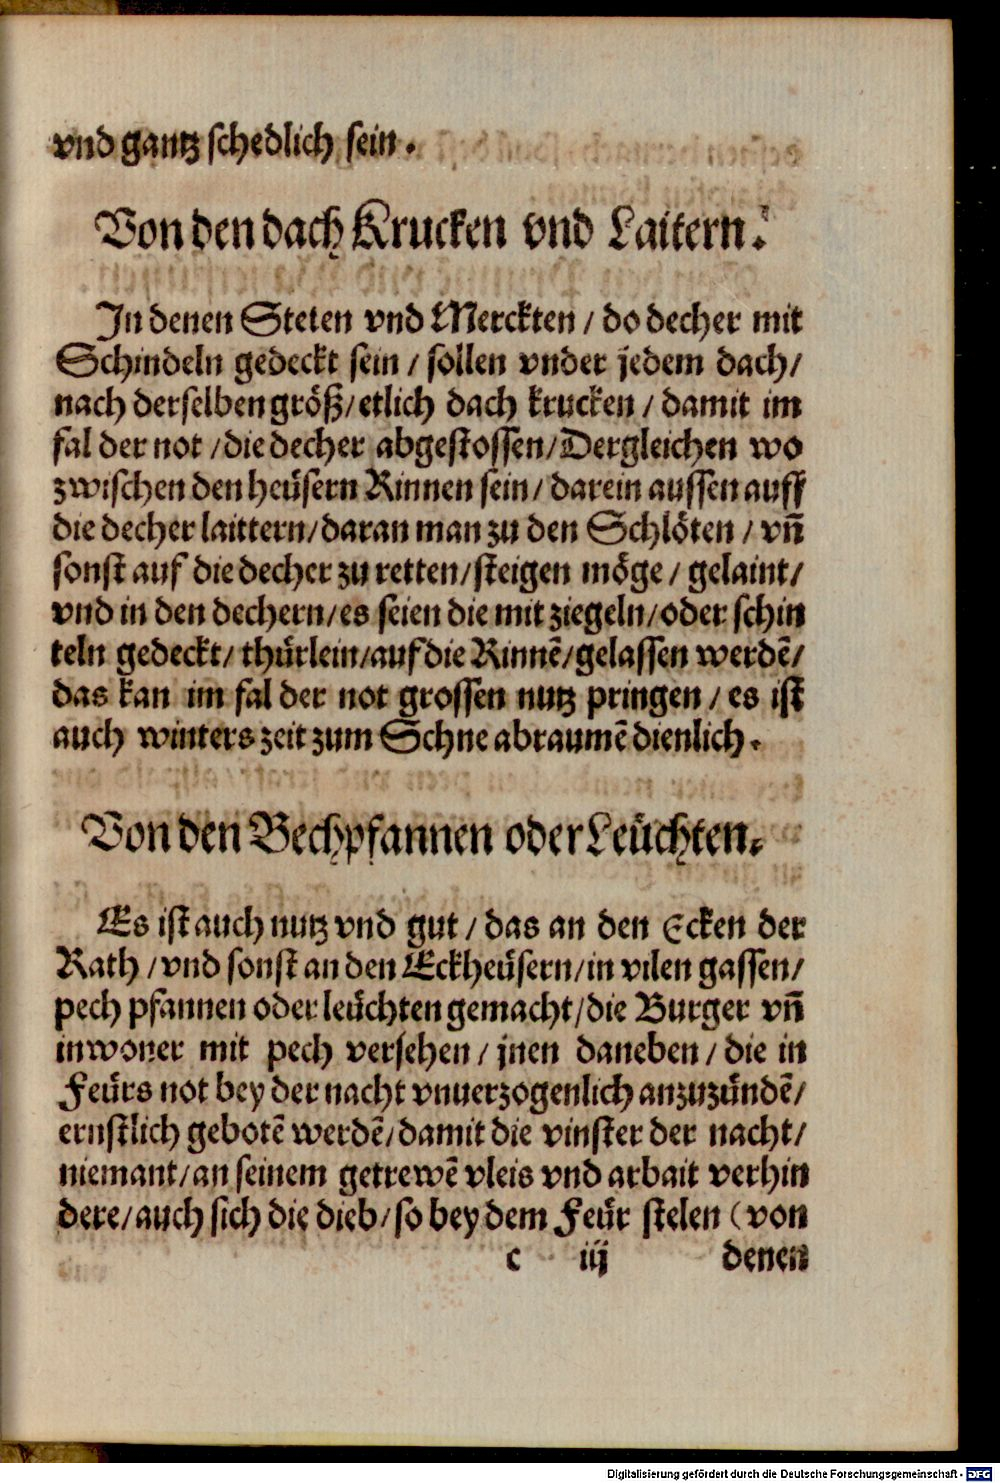 vnd gantz schedlich sein.
Von den dach Krucken vnd Laitern.
In denen Steten vnd Merckten / do decher mit
Schindeln gedeckt sein / sollen vnder jedem dach/
nach derselben größ/etlich dach krucken / damit im
fal der not /die decher abgestossen/Dergleichen wo
zwischen den heüsern Rinnen sein/ darein aussen auff
die decher laittern/daran man zu den Schlöten / vñ
sonst auf die decher zu retten/steigen möge / gelaint/
vnd in den dechern/es seien die mit ziegeln/oder schin
teln gedeckt/ thürlein/auf die Rinnē/gelassen werdē/
das kan im fal der not grossen nutz pringen / es ist
auch winters zeit zum Schne abraumē dienlich.
Von den Bechpfannen oder Leüchten.
Es ist auch nutz vnd gut / das an den Ecken der
Rath /vnd sonst an den Eckheüsern/in vilen gassen/
pech pfannen oder leüchten gemacht/die Burger vñ
inwoner mit pech versehen / jnen daneben / die in
Feürs not bey der nacht vnuerzogenlich anzuzündē/
ernstlich gebotē werdē/damit die vinster der nacht/
niemant/an seinem getrewē vleis vnd arbait verhin
dere/auch sich die dieb/so bey dem Feür stelen (von
c iij denen
Digitalisierung gefördert durch die Deutsche Forschungsgemeinschaft - DFG